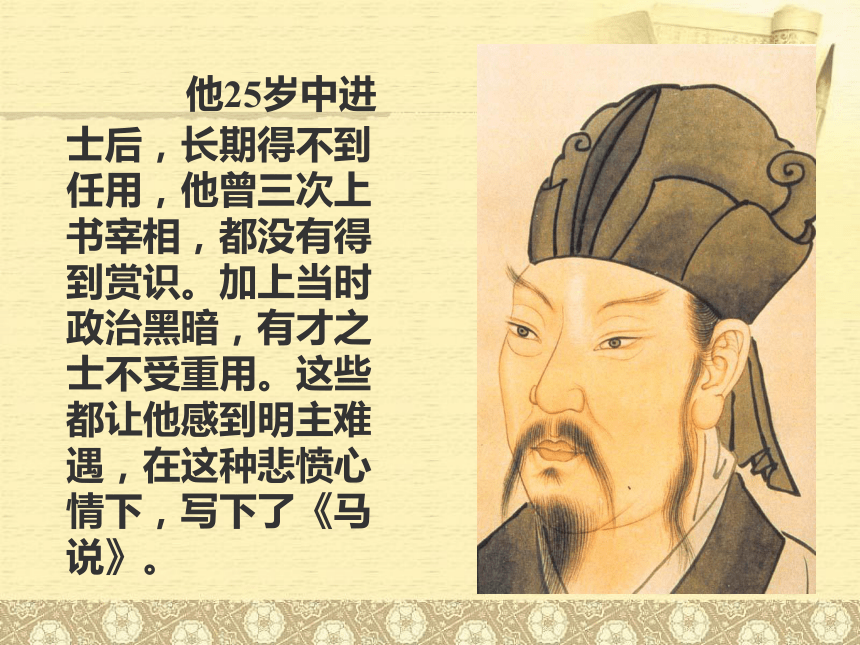 他25岁中进
士后，长期得不到
任用，他曾三次上
书宰相，都没有得
到赏识。加上当时
政治黑暗，有才之
士不受重用。这些
都让他感到明主难
遇，在这种悲愤心
情下，写下了《马
说》。